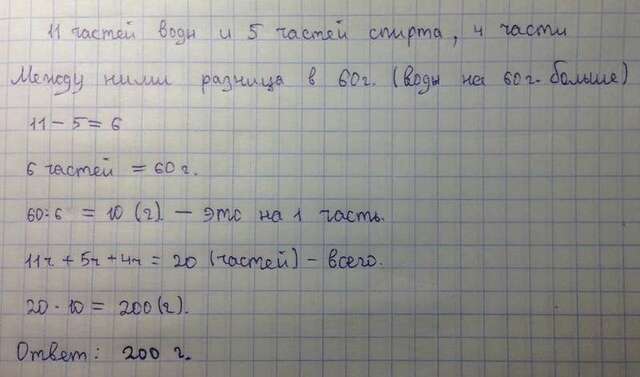 11 частей воды и 5 частей спирта, 4 части
Между ними разница в 60г. (воды на 60г. больше)
11 - 5 = 6
6 частей = 60г.
60:6 = 10 (г) — это на 1 часть.
11ч + 5ч + 4ч = 20 (частей) - всего.
20 · 10 = 200 (г).
Ответ: 200 г.